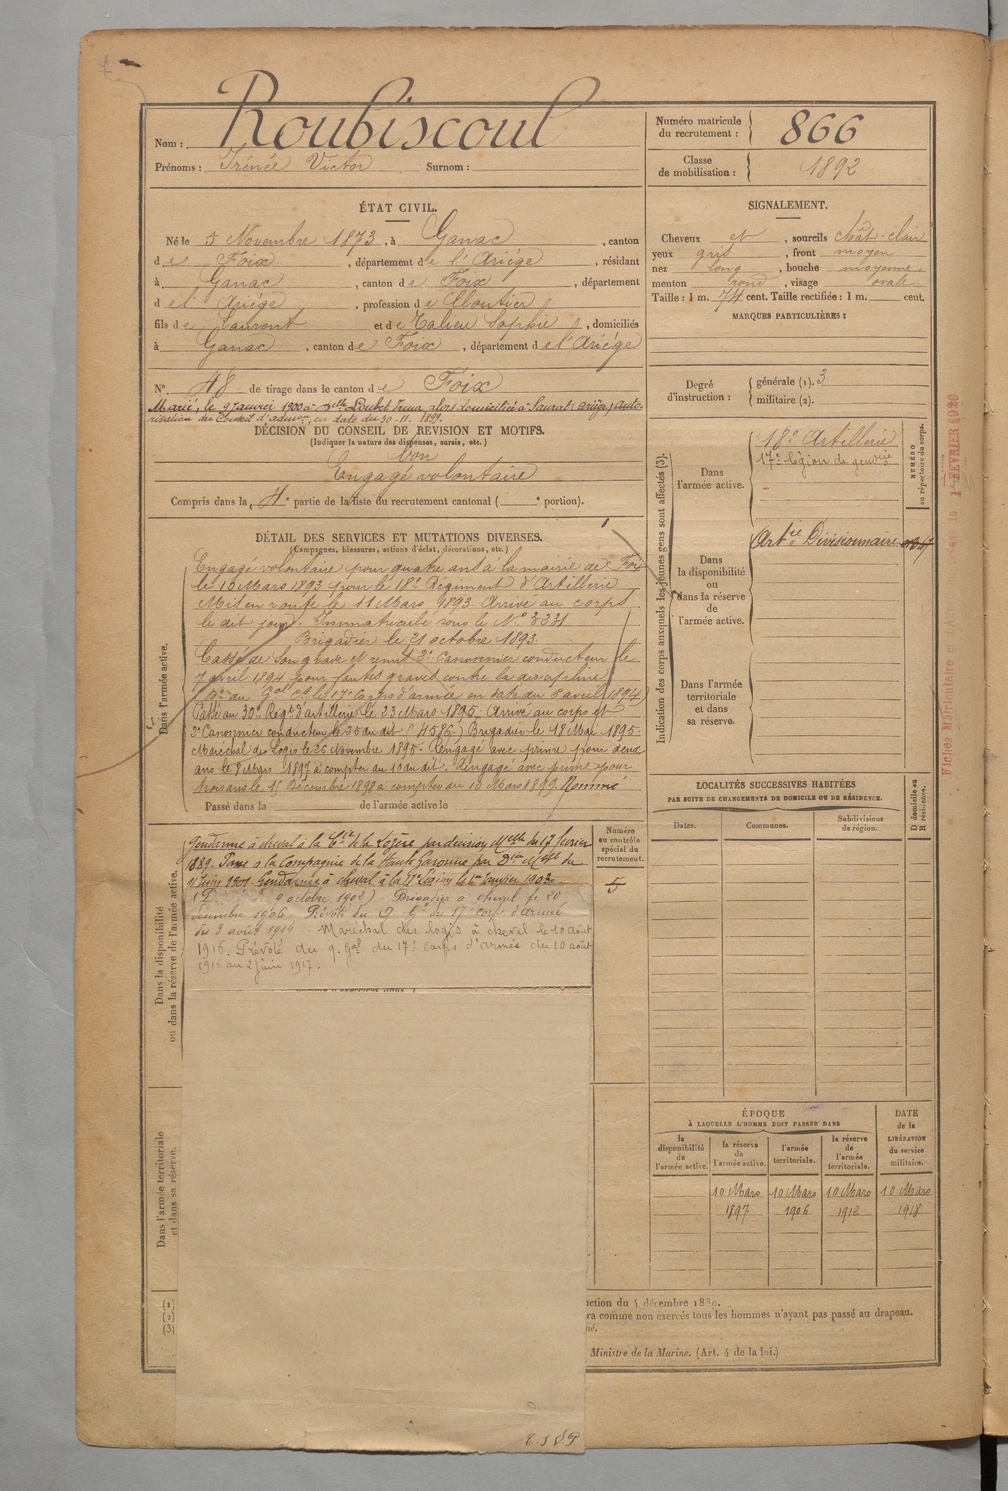 Nom : Roubiscoul
Prénoms : Irénée Victor Surnom :
Numéro matricule du recrutement : 866
Classe de mobilisation : 1892
ÉTAT CIVIL.
Né le 5 Novembre 1873, à Ganac, canton
de Foix, département de l'Ariège, résidant
à Ganac, canton de Foix, département
de l'Ariège, profession de
fils de Laurent et de Sophie, domiciliés
à Ganac, canton de Foix, département de l'Ariège
N° 48 de tirage dans le canton de Foix
Marié, le 9 Janvier 1900 à Dlle Loubet Irma, domiciliée à Saurat, ariège, auto-
risation du Conseil d'admon, en date du 30.11.1899.
DÉCISION DU CONSEIL DE REVISION ET MOTIFS.
(Indiquer la nature des dispenses, sursis, etc.)
bon
Engagé volontaire
Compris dans la 4e partie de la liste du recrutement cantonal ( e portion).
SIGNALEMENT.
Cheveux et, sourcils chât-clair
yeux gris, front moyen
nez long, bouche moyenne
menton rond, visage ovale
Taille : 1 m. 74 cent. Taille rectifiée : 1 m. cent.
MARQUES PARTICULIÈRES :
Degré d'instruction : générale (1). 3
militaire (2).
DÉTAIL DES SERVICES ET MUTATIONS DIVERSES.
(Campagnes, blessures, actions d'éclat, décorations, etc.)
Dans l'armée active.
Engagé volontaire pour quatre ans à la mairie de Foix
le 10 Mars 1893 pour le 18e Régiment d'Artillerie
Mis en route le 11 Mars 1893. Arrivé au corps
le dit jour. Immatriculé sous le N° 3331
Brigadier le 21 octobre 1893.
Cassé de son grade et remis 2e Canonnier conducteur le
7 avril 1894 pour fautes graves contre la discipline
du Gal Ct le 17e Corps d'armée en date du 6 avril 1894)
Passé au 30e Régt d'artillerie le 23 Mars 1895. Arrivé au corps et
2e Canonnier conducteur le 25 du dit (4586) Brigadier le 18 Mai 1895.
Maréchal des Logis le 26 Novembre 1895. Rengagé avec prime pour deux
ans le 8 Mars 1897 à compter du 10 du dit. Rengagé avec prime pour
trois ans le 15 Décembre 1898 à compter du 10 Mars 1899. Nommé
Passé dans la de l'armée active le
Dans la disponibilité ou dans la réserve de l'armée active.
Gendarme à cheval à la Cie de la Lozère par décision Melle du 17 février
1889. Passé à la Compagnie de la Haute Garonne par Don Melle du
Juin 1901. Gendarme à cheval à la 17e Légion le 1er Janvier 1902
9 octobre 1902) Brigadier à cheval le 20
décembre 1906. Prévôté du Q. Gl du 17e corps d'armée
du 3 août 1914. Maréchal des logis à cheval le 10 août
1916. Prévôté du q. gal du 17e corps d'armée du 10 août
1916 au 2 juin 1917.
Numéro au contrôle spécial du recrutement.
5
Dans l'armée territoriale et dans sa réserve.
(1)
(2)
(3)
Indication des corps auxquels les jeunes gens sont affectés (3).
NUMÉRO au répertoire du corps.
Dans l'armée active.
18e Artillerie
17e légion de gendrie
Dans la disponibilité ou dans la réserve de l'armée active.
Artie Divisionnaire
Dans l'armée territoriale et dans sa réserve.
LOCALITÉS SUCCESSIVES HABITÉES
PAR SUITE DE CHANGEMENTS DE DOMICILE OU DE RÉSIDENCE.
Dates. Communes. Subdivisions de région.
D domicile ou R résidence.
ÉPOQUE
À LAQUELLE L'HOMME DOIT PASSER DANS
la disponibilité de l'armée active.
la réserve de l'armée active.
l'armée territoriale.
la réserve de l'armée territoriale.
DATE de la LIBÉRATION du service militaire.
10 Mars 10 Mars 10 Mars 10 Mars
1897 1906 1912 1918
uction du 4 décembre 1889.
ra comme non exercés tous les hommes n'ayant pas passé au drapeau.
né.
Ministre de la Marine. (Art. 4 de la loi.)
Fiches Matriculaire et 1er FÉVRIER 1920